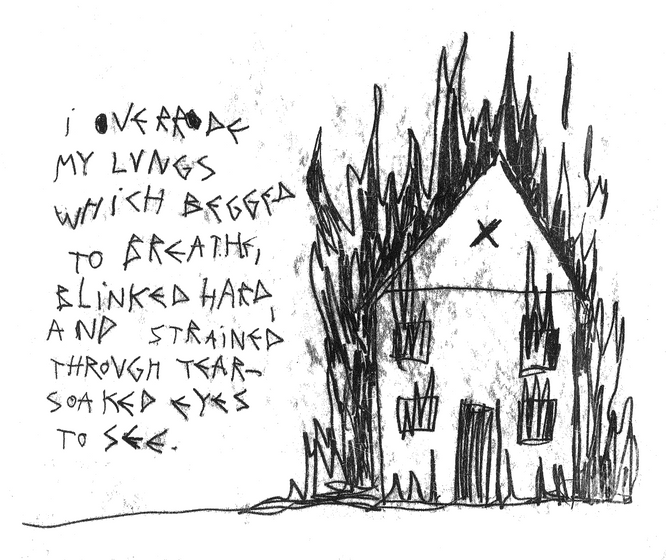 i OVERRODE
MY LUNGS
WHiCH BEGGED
TO BREATHE,
BLiNKED HARD,
AND STRAiNED
THROUGH TEAR-
SOAKED EYES
TO SEE.